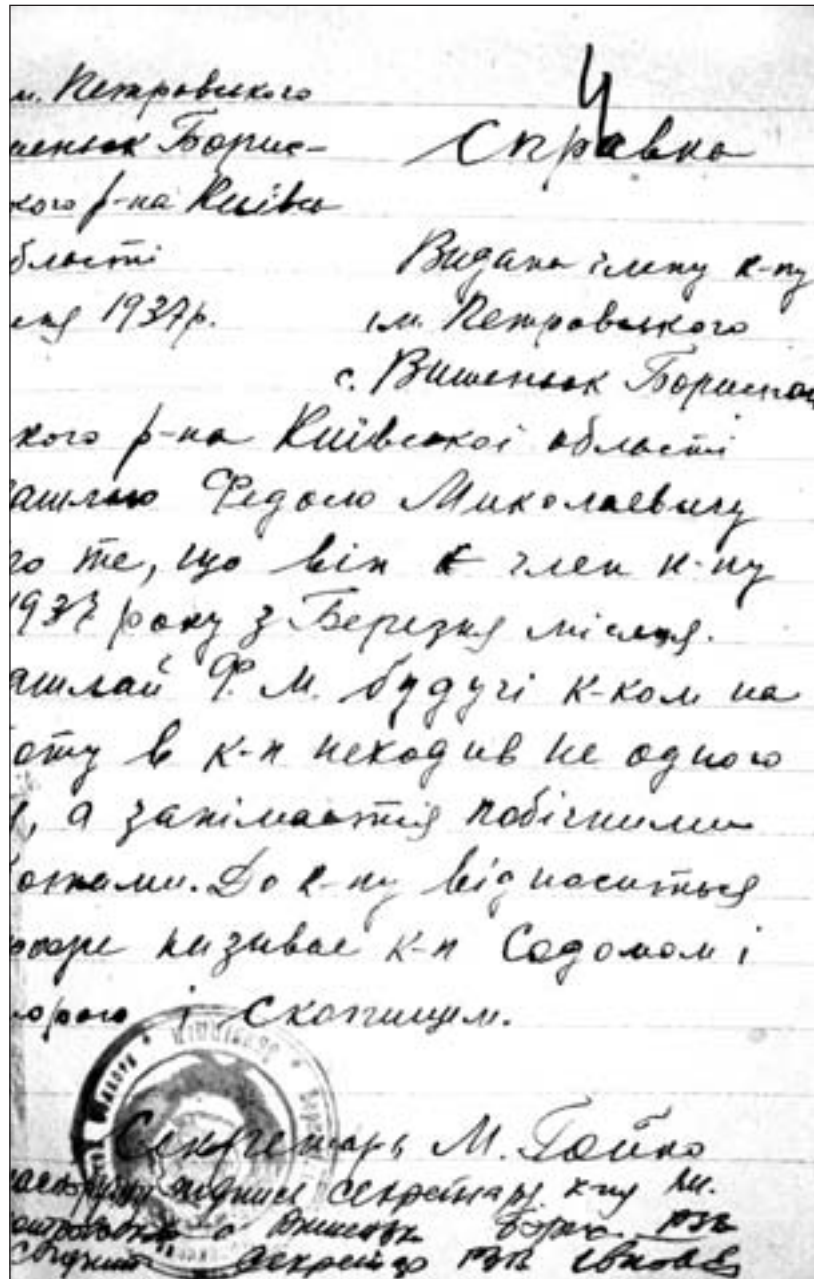 м. Петровского
шеньок Борис-
кого р-на Київсь
бласті
ня 1937р.
Справка
Видана члену к-пу
ім. Петровського
с. Вишеньок Бориспол
кого р-на Київської області
ашлаю Федосю Миколаевичу
го те, що він є член к-пу
1937 року з Березня місяця.
ашлай Ф. М. будучі к-ком на
оту в к-п неходив не одного
я, а занімается побічними
отками. До к-пу відноситься
називає к-п Содомом і
морою і скопищем.
Секретарь М. Бойко
підпис секретаря к-пу ім.
Вишеньок
Секретар